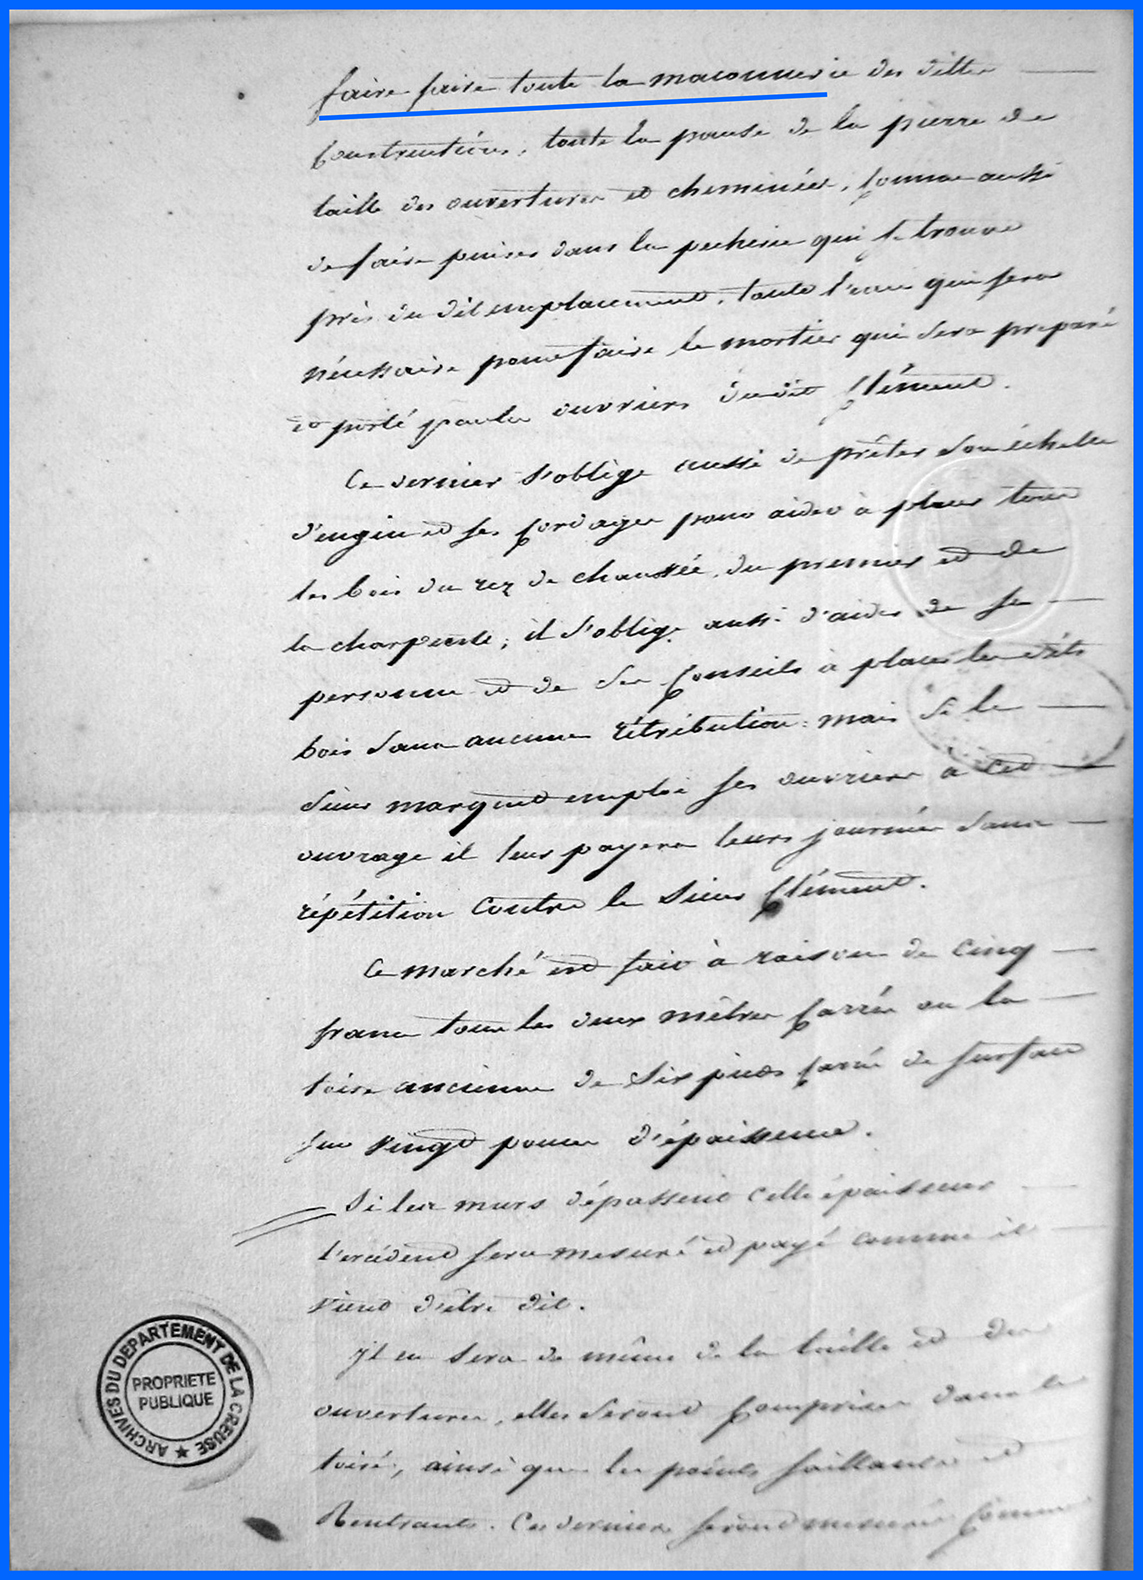 faire faire toute la maconnerie des dittes
Constructions, toute la pause de la pierre de
taille des ouvertures et cheminées, Comme aussi
de faire puiser dans la pecherie qui se trouve
près du dit emplacement, toute l'eau qui sera
nécessaire pour faire le mortier qui sera préparé
et porté par les ouvriers dudit Clément.
Ce dernier s'oblige aussi de prêter son échelle
d'engin et ses Cordages pour aider à placer tous
les bois du rez de chaussée, du premier et de
la charpente; il s'oblige aussi d'aider de sa
personne et de ses Conseils à placer les dits
bois sans aucune rétribution: mais si le
sieur marquet emploi ses ouvriers à cet
ouvrage il leur payera leurs journées sans
répétition contre le sieur Clément.
Ce marché est fait à raison de cinq
francs tous les deux mètres Carrés ou la
toise ancienne de six pieds Carrés de surface
sur vingt pouces d'épaisseur.
Si les murs dépassent cette épaisseur
l'excédent sera mesuré et payé comme il
vient d'être dit.
Il en sera de même de la taille et des
ouvertures, elles seront Comprises dans le
toisé, ainsi que les points saillants et
Rentrants. Ces derniers seront mesurés Comme
ARCHIVES DU DEPARTEMENT DE LA CREUSE
PROPRIETE
PUBLIQUE